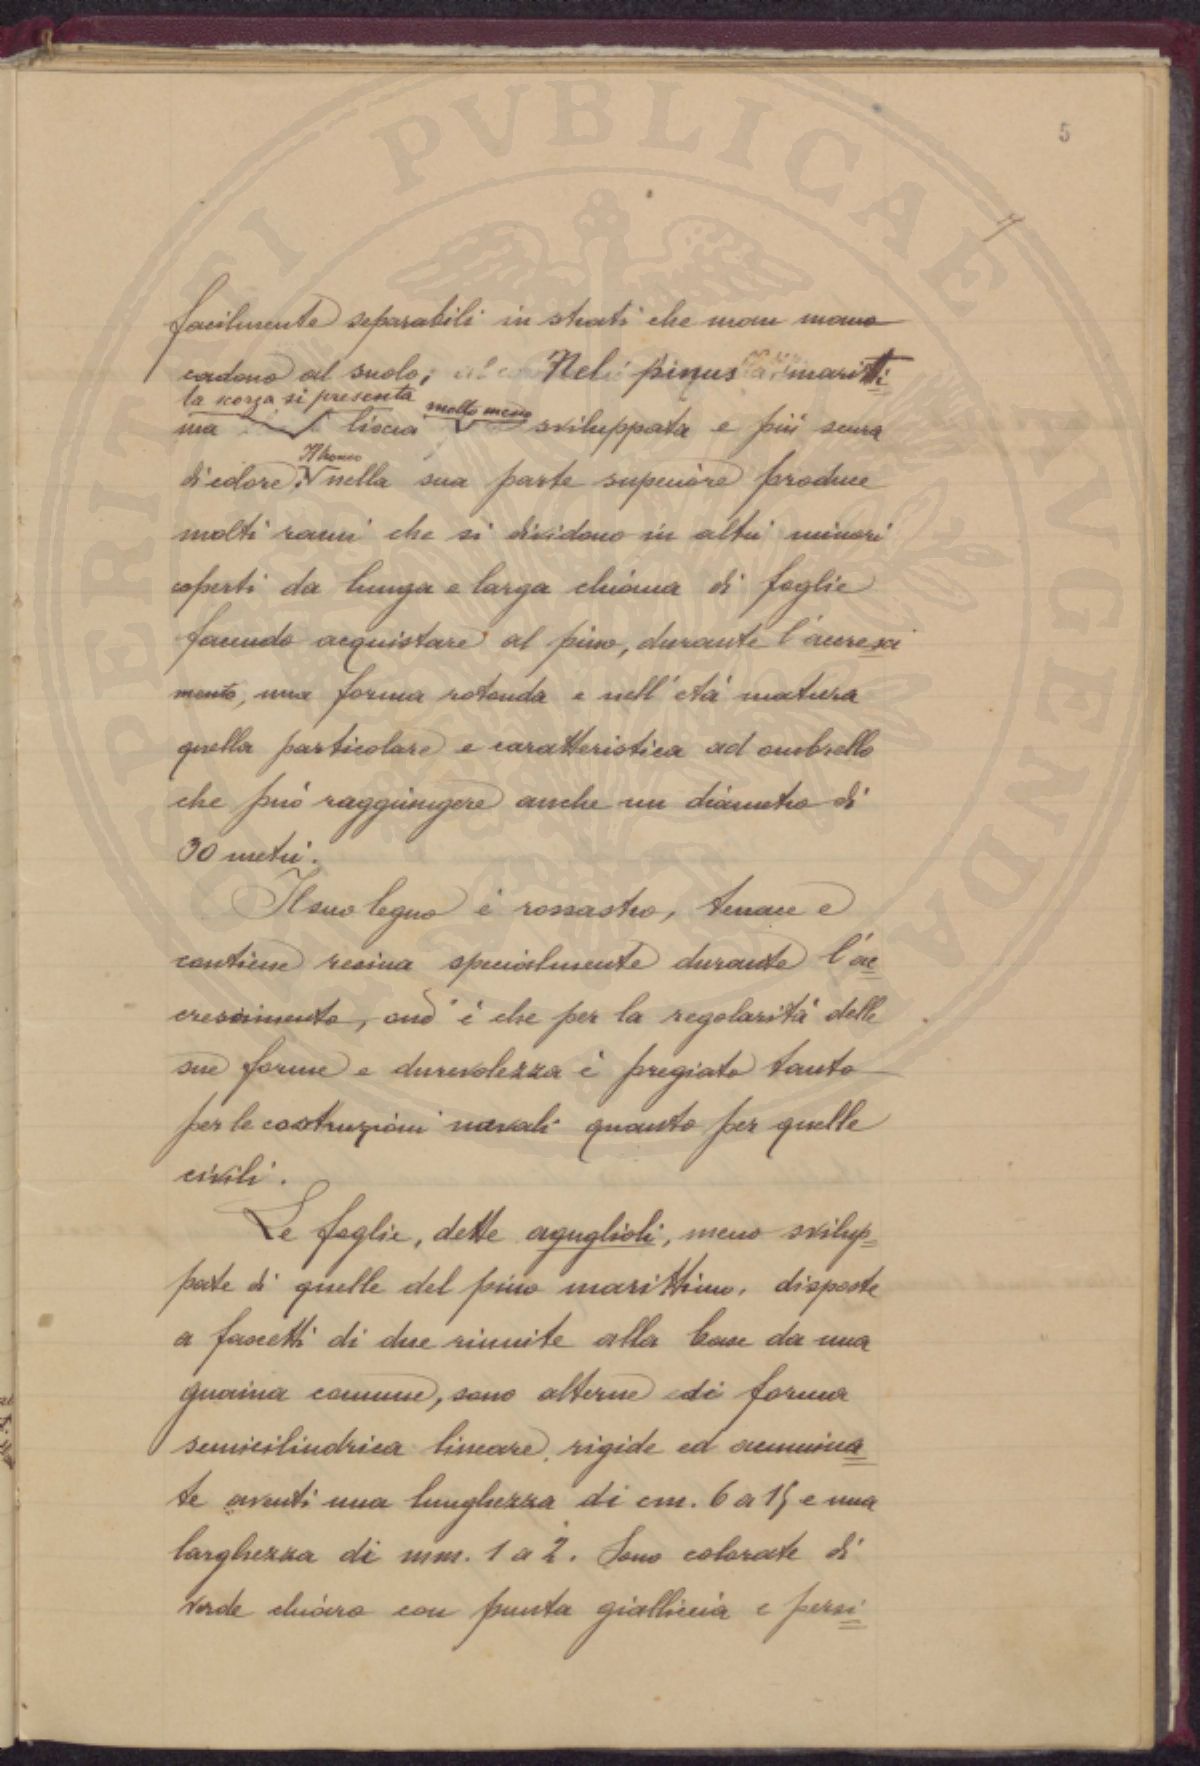 5
7
facilmente separabili in strati che man mano
cadono al suolo; Nel pinus maritti
la scorza si presenta
molto meno
ma liscia sviluppata e più scura
Il tronco
di colore. nella sua parte superiore produce
molti rami che si dividono in altri minori
coperti da lunga e larga chioma di foglie
facendo acquistare al pino, durante l'accresci
mento, una forma rotonda e nell'età matura
quella particolare e caratteristica ad ombrello
che può raggiungere anche un diametro di
30 metri.
Il suo legno è rossastro, tenace e
contiene resina specialmente durante l'ac
crescimento, ond'è che per la regolarità delle
sue forme e durevolezza è pregiato tanto
per le costruzioni navali quanto per quelle
civili.
Le foglie, dette aguglioli, meno svilup=
pate di quelle del pino marittimo, disposte
a fascetti di due riunite alla base da una
guaina comune, sono alterne di forma
semicilindrica lineare, rigide ed acumina
te aventi una lunghezza di cm. 6 a 15 e una
larghezza di mm. 1 a 2. Sono colorate di
verde chiaro con punta gialliccia e persi
PERITI PVBLICAE PVGENDA